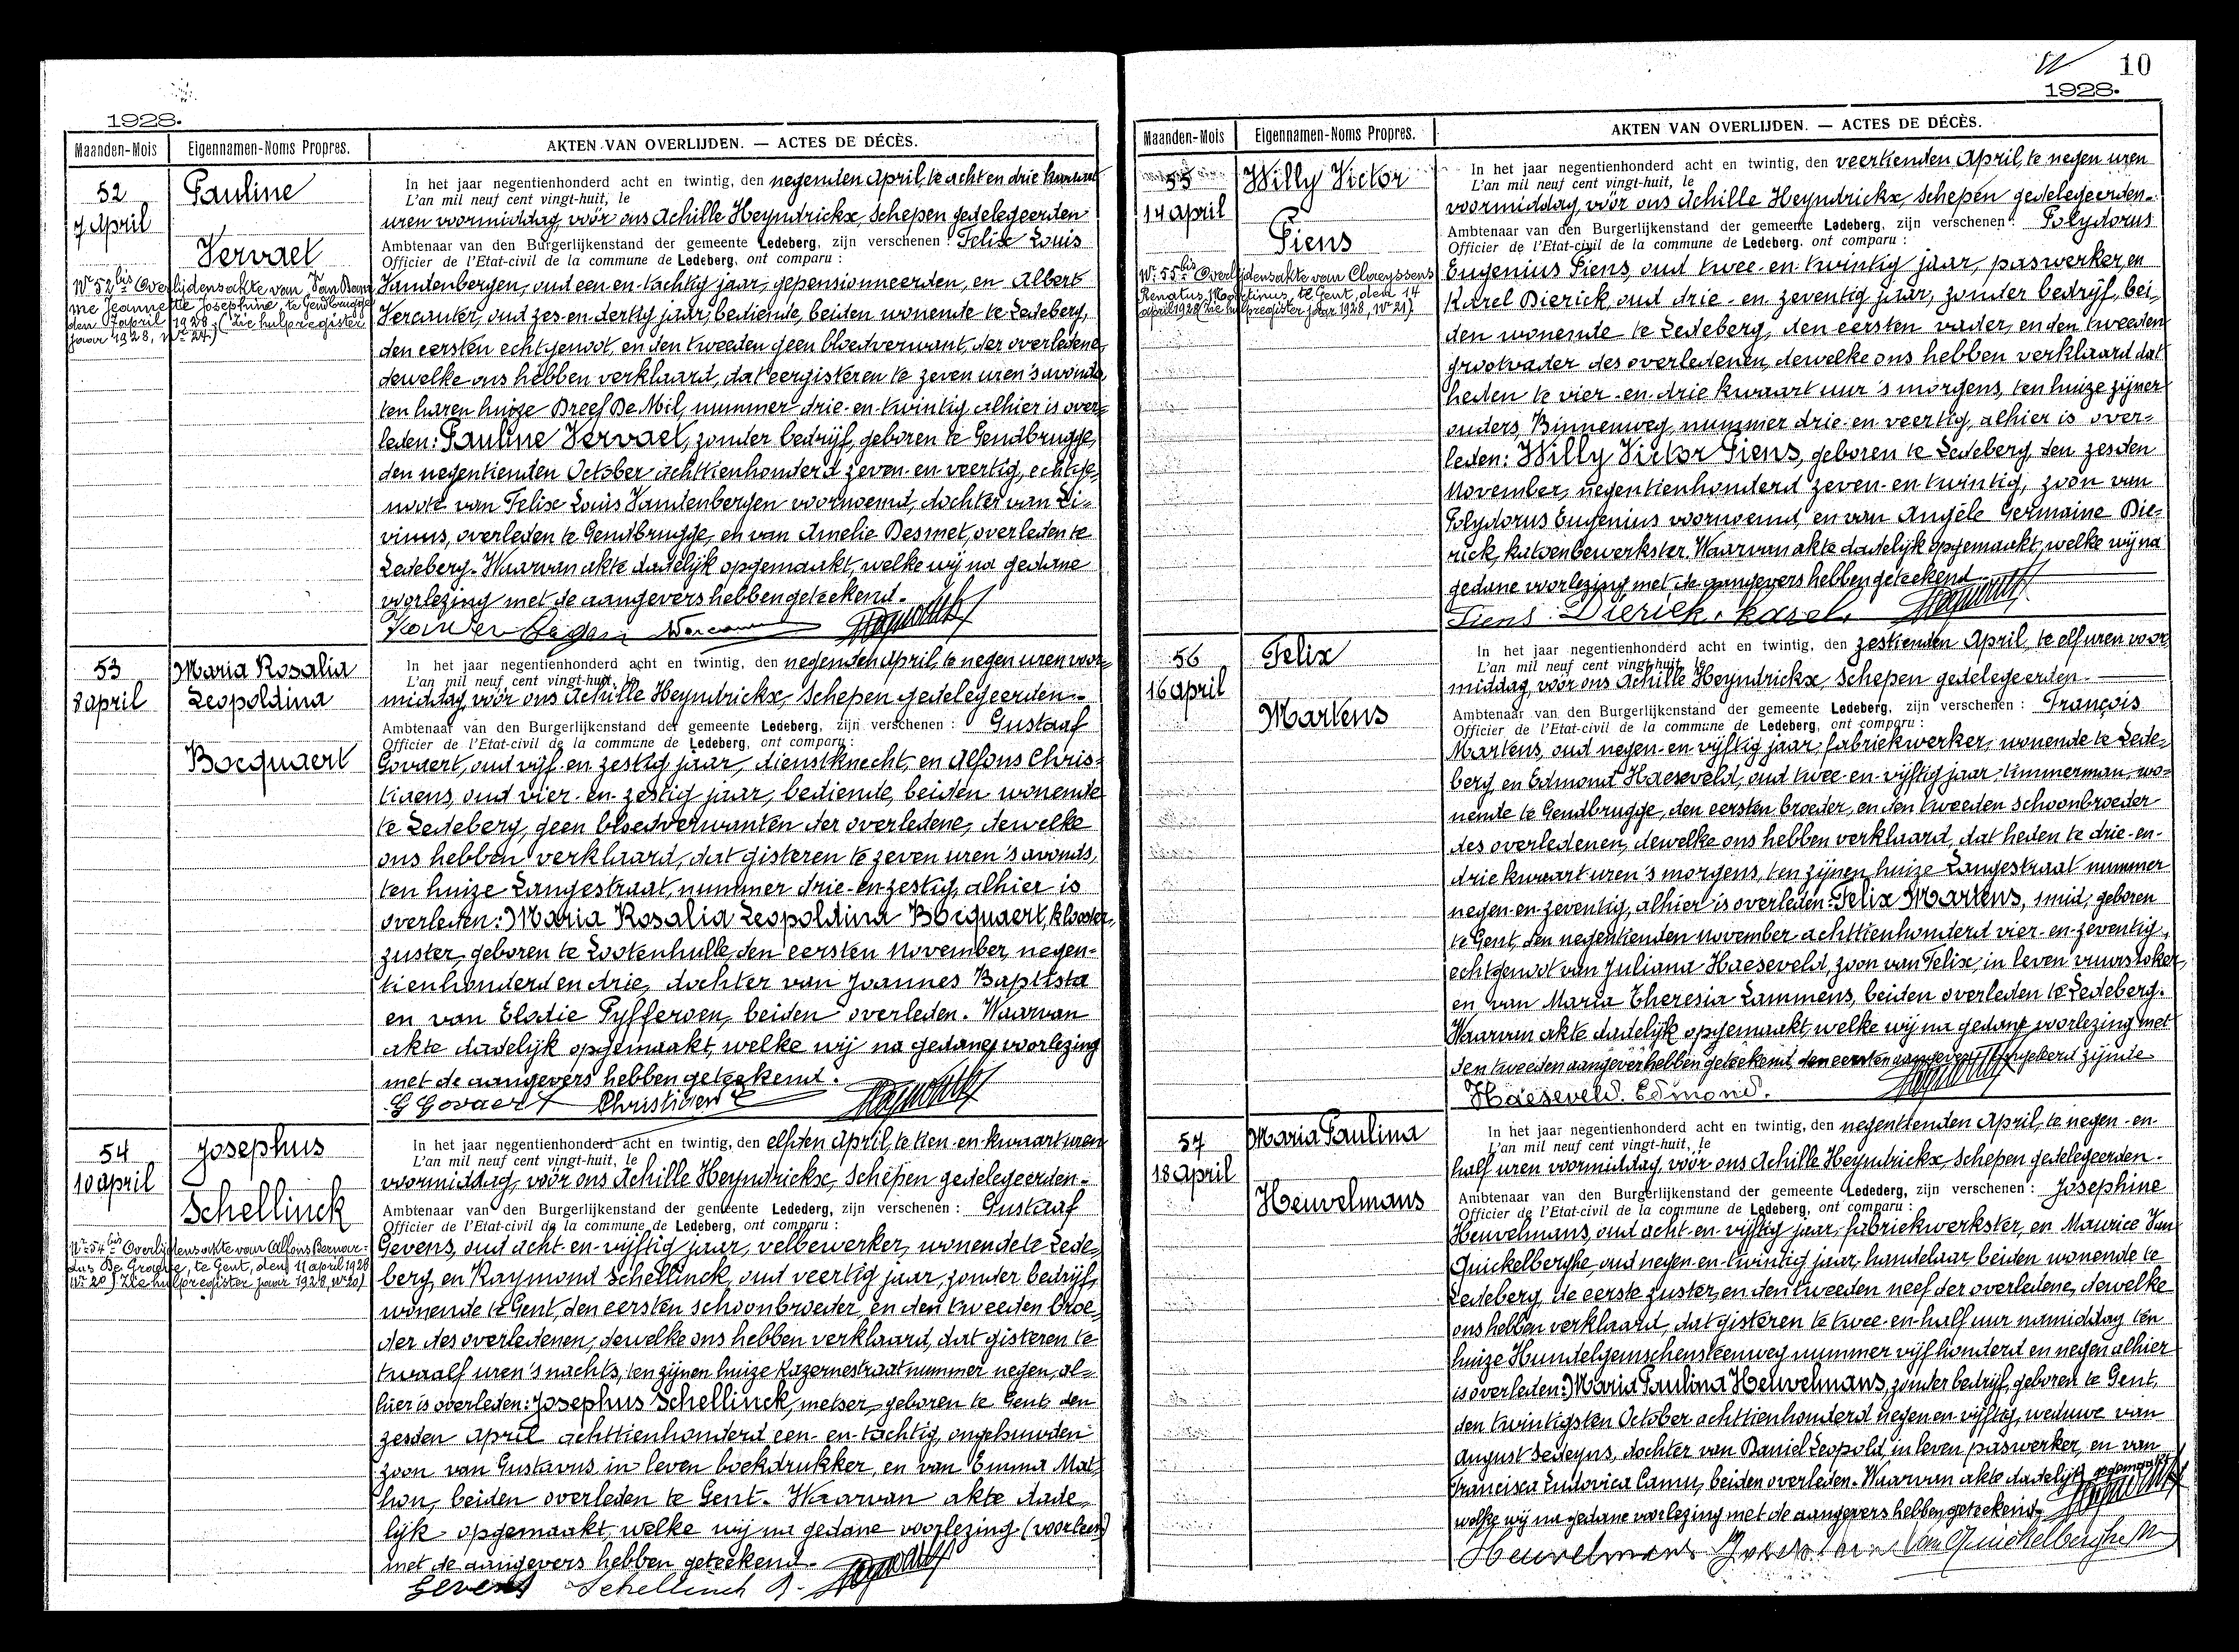 1928.
Maanden-Mois Eigennamen-Noms Propres. AKTEN VAN OVERLIJDEN. — ACTES DE DÉCÈS.
52
7 April
Pauline
Vervaet
Nr 52bis Overlijdensakte van Van
me Jeannette Josephine, te Gendbrugge
den 7 april 1928. (zie hulpregister
jaar 1928, Nr 24.)
In het jaar negentienhonderd acht en twintig, den negenden April, te acht en drie kwaart
L'an mil neuf cent vingt-huit, le
uren voormiddag, vóór ons Achille Heyndrickx, Schepen gedelegeerden
Ambtenaar van den Burgerlijkenstand der gemeente Ledeberg, zijn verschenen : Felix Louis
Officier de l'Etat-civil de la commune de Ledeberg, ont comparu :
Vandenbergen, oud een en-tachtig jaar, gepensionneerden, en Albert
Vercauter, oud zes-en-dertig jaar, bediende, beiden wonende te Ledeberg,
den eersten echtgenoot, en den tweeden geen bloedverwant, der overledene,
dewelke ons hebben verklaard, dat eergisteren te zeven uren 's avonds,
ten haren huize Dreef De Mil, nummer drie-en-twintig, alhier is over-
leden: Pauline Vervaet, zonder bedrijf, geboren te Gendbrugge,
den negentienden October achttienhonderd zeven-en-veertig, echtge-
noote van Felix Louis Vandenbergen voornoemd, dochter van Li-
vinus, overleden te Gendbrugge, en van Amelie Desmet, overleden te
Ledeberg. Waarvan akte dadelijk opgemaakt, welke wij na gedane
voorlezing met de aangevers hebben geteekend.
53
8 april
Maria Rosalia
Leopoldina
Bocquaert
In het jaar negentienhonderd acht en twintig, den negenden April, te negen uren voor-
L'an mil neuf cent vingt-huit, le
middag, vóór ons Achille Heyndrickx, Schepen gedelegeerden.
Ambtenaar van den Burgerlijkenstand der gemeente Ledeberg, zijn verschenen : Gustaaf
Officier de l'Etat-civil de la commune de Ledeberg, ont comparu :
Govaert, oud vijf-en-zestig jaar, dienstknecht, en Alfons Chris-
tiaens, oud vier-en-zestig jaar, bediende, beiden wonende
te Ledeberg, geen bloedverwanten der overledene, dewelke
ons hebben verklaard, dat gisteren te zeven uren 's avonds,
ten huize Langestraat, nummer drie-en-zestig, alhier is
overleden: Maria Rosalia Leopoldina Bocquaert, klooster,
zuster, geboren te Lootenhulle, den eersten November, negen-
tienhonderd en drie, dochter van Joannes Baptista
en van Elodie Pyfferoen, beiden overleden. Waarvan
akte dadelijk opgemaakt, welke wij na gedane voorlezing
met de aangevers hebben geteekend.
G Govaert Christiaens
54
10 april
Josephus
Schellinck
Nr 54bis Overlijdensakte van Alfons Bernar-
dus De Groeve, te Gent, den 11 april 1928
(Nr 20) Zie hulpregister jaar 1928, Nr 20)
In het jaar negentienhonderd acht en twintig, den elfden April, te tien-en-kwaart uren
L'an mil neuf cent vingt-huit, le
voormiddag, vóór ons Achille Heyndrickx, Schepen gedelegeerden.
Ambtenaar van den Burgerlijkenstand der gemeente Ledederg, zijn verschenen : Gustaaf
Officier de l'Etat-civil de la commune de Ledeberg, ont comparu :
Gevens, oud acht-en-vijftig jaar, velbewerker, wonende te Lede-
berg, en Raymond Schellinck, oud veertig jaar, zonder bedrijf,
wonende te Gent, den eersten schoonbroeder, en den tweeden broe-
der des overledenen, dewelke ons hebben verklaard, dat gisteren te
twaalf uren 's nachts, ten zijnen huize Kazernestraat nummer negen, al-
hier is overleden: Josephus Schellinck, metser, geboren te Gent, den
zesden april achttienhonderd een-en-tachtig, ongehuwden
zoon van Gustavus in leven boekdrukker, en van Emma Mat-
hon, beiden overleden te Gent. Waarvan akte dade-
lijk opgemaakt, welke wij na gedane voorlezing (voorlezen)
met de aangevers hebben geteekend.
Gevens Schellinck
10
1928.
Maanden-Mois Eigennamen-Noms Propres. AKTEN VAN OVERLIJDEN. — ACTES DE DÉCÈS.
55
14 april
Willy Victor
Piens
Nr 55bis Overlijdensakte van Claeyssens
Renatus Martinus, te Gent, den 14
april 1928 (Zie hulpregister jaar 1928, Nr 21)
In het jaar negentienhonderd acht en twintig, den veertienden April, te negen uren
L'an mil neuf cent vingt-huit, le
voormiddag, vóór ons Achille Heyndrickx, Schepen gedelegeerden.
Ambtenaar van den Burgerlijkenstand der gemeente Ledeberg, zijn verschenen : Polydorus
Officier de l'Etat-civil de la commune de Ledeberg, ont comparu :
Eugenius Piens, oud twee-en-twintig jaar, paswerker, en
Karel Dierick, oud drie-en-zeventig jaar, zonder bedrijf, bei-
den wonende te Ledeberg, den eersten vader, en den tweeden
grootvader des overledenen, dewelke ons hebben verklaard dat
heden te vier-en-drie kwaart uur 's morgens, ten huize zijner
ouders, Binnenweg, nummer drie-en-veertig, alhier is over-
leden: Willy Victor Piens, geboren te Ledeberg, den zesden
November, negentienhonderd zeven-en-twintig, zoon van
Polydorus Eugenius voornoemd, en van Angèle Germaine Die-
rick, katoenbewerkster. Waarvan akte dadelijk opgemaakt, welke wij na
gedane voorlezing, met de aangevers hebben geteekend
Piens. Dierick. Karel.
56
16 april
Felix
Martens
In het jaar negentienhonderd acht en twintig, den zestienden April, te elf uren voor
L'an mil neuf cent vingt-huit, le
middag, vóór ons Achille Heyndrickx, Schepen gedelegeerden.
Ambtenaar van den Burgerlijkenstand der gemeente Ledeberg, zijn verschenen : François
Officier de l'Etat-civil de la commune de Ledeberg, ont comparu :
Martens, oud negen-en-vijftig jaar, fabriekwerker, wonende te Lede-
berg, en Edmond Haeseveld, oud twee-en-vijftig jaar timmerman, wo-
nende te Gendbrugge, den eersten broeder, en den tweeden schoonbroeder
des overledenen, dewelke ons hebben verklaard, dat heden te drie-en-
drie kwaart uren 's morgens, ten zijnen huize Langestraat nummer
negen-en-zeventig, alhier is overleden: Felix Martens, smid, geboren
te Gent, den negentienden november achttienhonderd vier-en-zeventig,
echtgenoot van Juliana Haeseveld, zoon van Felix, in leven vuurstoker,
en van Maria Theresia Lammens, beiden overleden te Ledeberg.
Waarvan akte dadelijk opgemaakt, welke wij na gedane voorlezing met
den tweeden aangever hebben geteekend, den eersten aangever ongeleerd zijnde.
Haeseveld. Edmond.
57
18 April
Maria Paulina
Heuvelmans
In het jaar negentienhonderd acht en twintig, den negentienden April, te negen-en-
L'an mil neuf cent vingt-huit, le
half uren voormiddag, vóór ons Achille Heyndrickx, Schepen gedelegeerden.
Ambtenaar van den Burgerlijkenstand der gemeente Ledederg, zijn verschenen : Josephine
Officier de l'Etat-civil de la commune de Ledeberg, ont comparu :
Heuvelmans, oud acht-en-vijftig jaar, fabriekwerkster, en Maurice Van
Quickelberghe, oud negen-en-twintig jaar, handelaar, beiden wonende te
Ledeberg, de eerste zuster, en den tweeden neef der overledene, dewelke
ons hebben verklaard, dat gisteren te twee-en-half uur namiddag ten
huize Hundelgemschensteenweg nummer vijfhonderd en negen alhier
is overleden: Maria Paulina Heuvelmans, zonder bedrijf, geboren te Gent,
den twintigsten October achttienhonderd negen en vijftig, weduwe van
August Sedeyns, dochter van Daniel Leopold, in leven paswerker, en van
Francisca Ludovica Camu, beiden overleden. Waarvan akte dadelijk opgemaakt
welke wij na gedane voorlezing met de aangevers hebben geteekend.
Heuvelmans Josephine Van Quickelberghe M